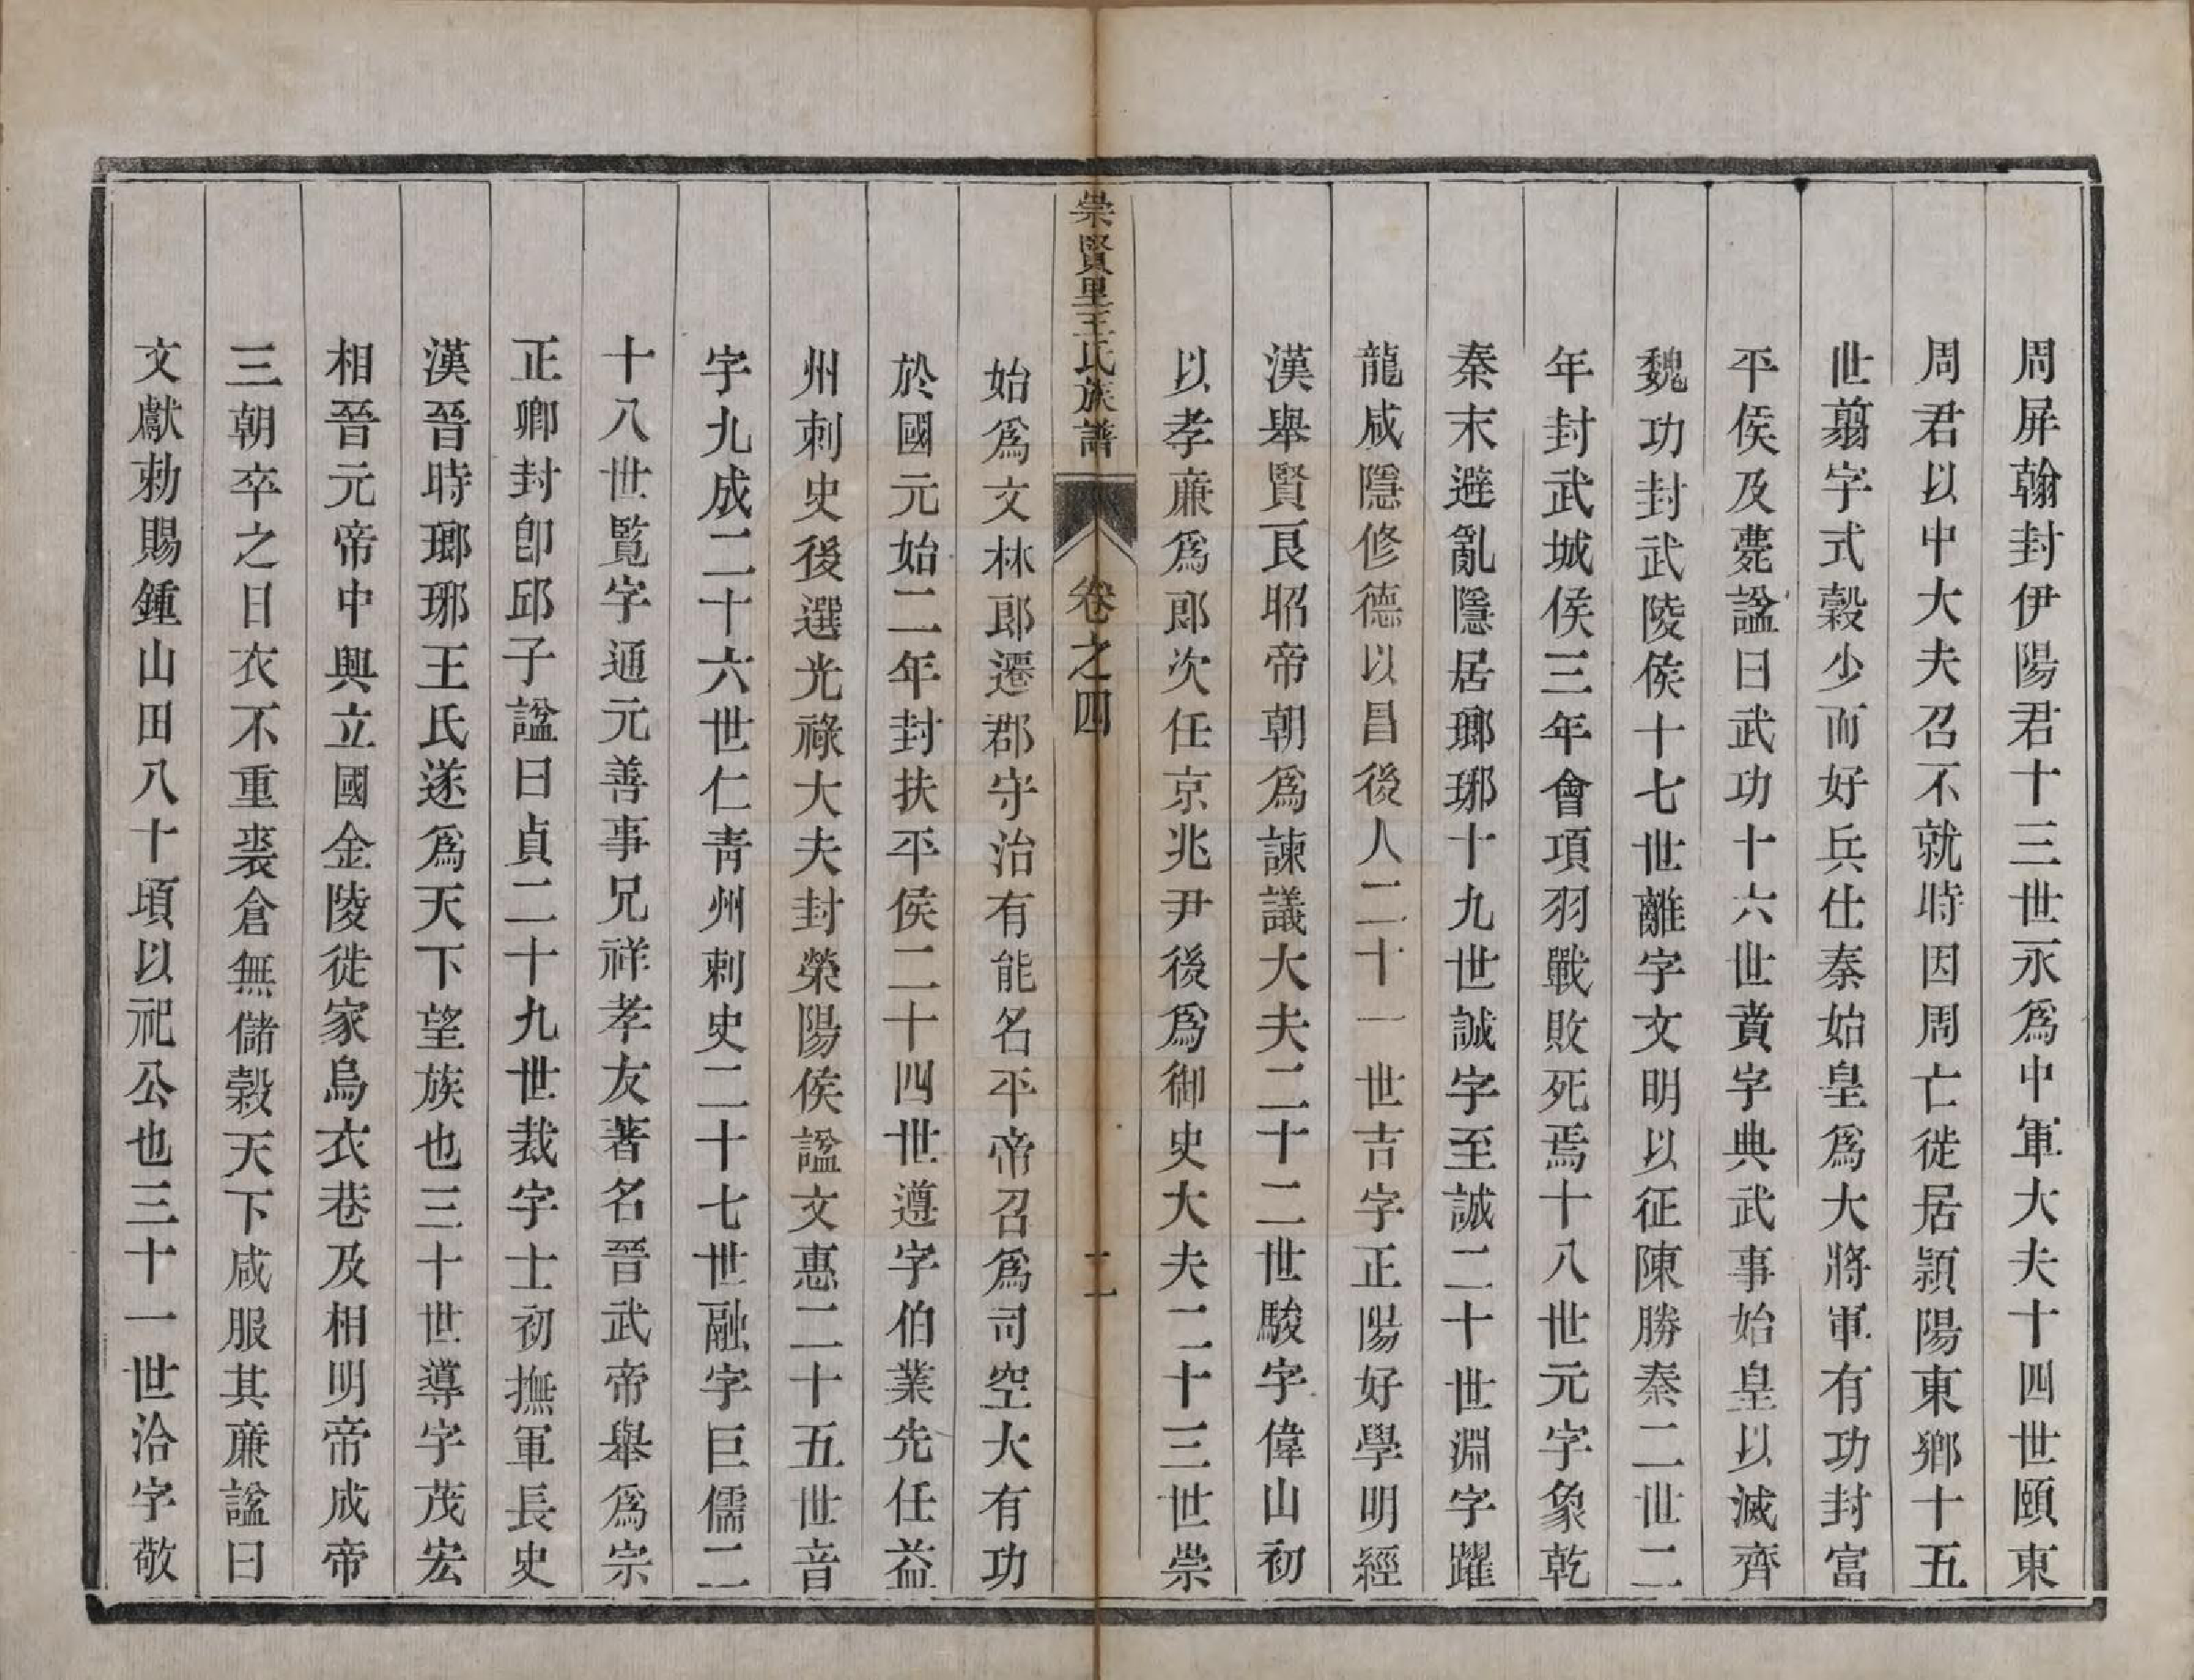 周屏翰封伊陽君十三世永爲中軍大夫十四世頤東
周君以中大夫召不就時因周亡徙居潁陽東鄉十五
世翦字式穀少而好兵仕秦始皇爲大將軍有功封富
平侯及薨謚曰武功十六世賁字典武事始皇以滅齊
魏功封武陵侯十七世離字文明以征陳勝秦二世二
年封武城侯三年會項羽戰敗死焉十八世元字象乾
秦末避亂隱居瑯琊十九世誠字至誠二十世淵字躍
龍咸隱修德以昌後人二十一世吉字正陽好學明經
漢舉賢良昭帝朝爲諫議大夫二十二世駿字偉山初
以孝廉爲郎次任京兆尹後爲御史大夫二十三世崇
崇賢里王氏族譜 卷之四 二
始爲文林郎遷郡守治有能名平帝召爲司空大有功
於國元始二年封扶平侯二十四世遵字伯業先任益
州刺史後選光祿大夫封榮陽侯謚文惠二十五世音
字九成二十六世仁靑州刺史二十七世融字巨儒二
十八世覧字通元善事兄祥孝友著名晉武帝舉爲宗
正卿封卽邱子謚曰貞二十九世裁字士初撫軍長史
漢晉時瑯琊王氏遂爲天下望族也三十世導字茂宏
相晉元帝中興立國金陵徙家烏衣巷及相明帝成帝
三朝卒之日衣不重裘倉無儲穀天下咸服其廉謚曰
文獻勅賜鍾山田八十頃以祀公也三十一世洽字敬